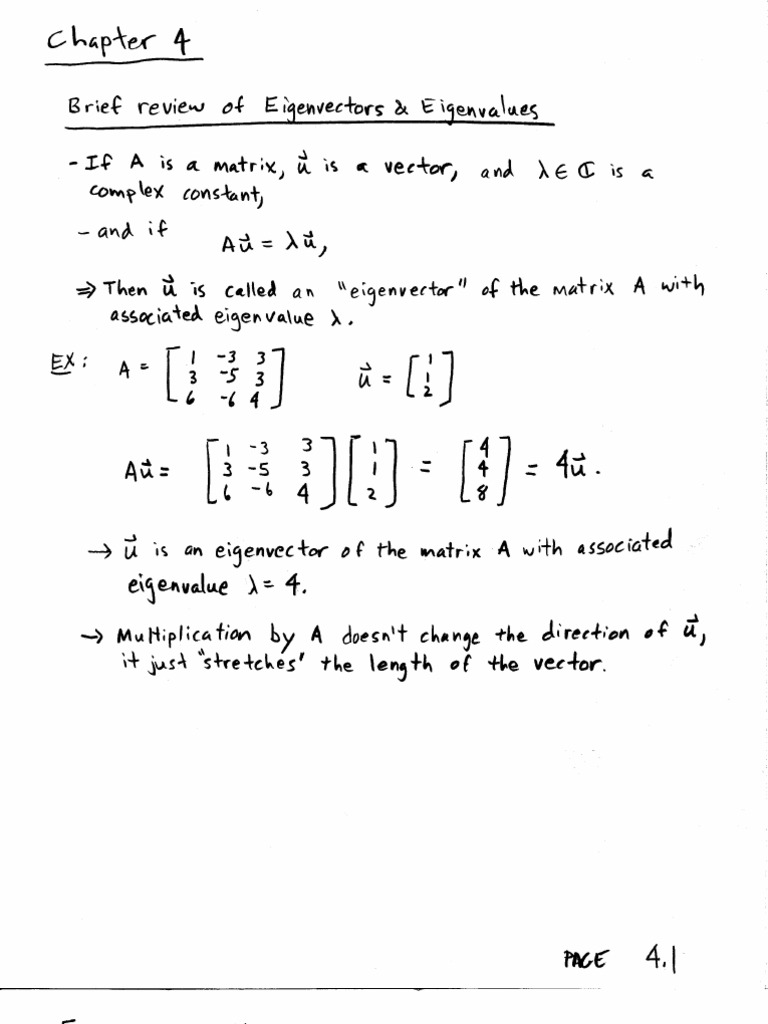 Chapter 4
Brief review of Eigenvectors & Eigenvalues
- If A is a matrix, u⃗ is a vector, and λ ∈ ℂ is a
complex constant,
- and if
Au⃗ = λu⃗,
⇒ Then u⃗ is called an "eigenvector" of the matrix A with
associated eigenvalue λ.
EX: A = [1 -3 3; 3 -5 3; 6 -6 4] u⃗ = [1; 1; 2]
Au⃗ = [1 -3 3; 3 -5 3; 6 -6 4] [1; 1; 2] = [4; 4; 8] = 4u⃗.
→ u⃗ is an eigenvector of the matrix A with associated
eigenvalue λ = 4.
→ Multiplication by A doesn't change the direction of u⃗,
it just "stretches" the length of the vector.
PAGE 4.1